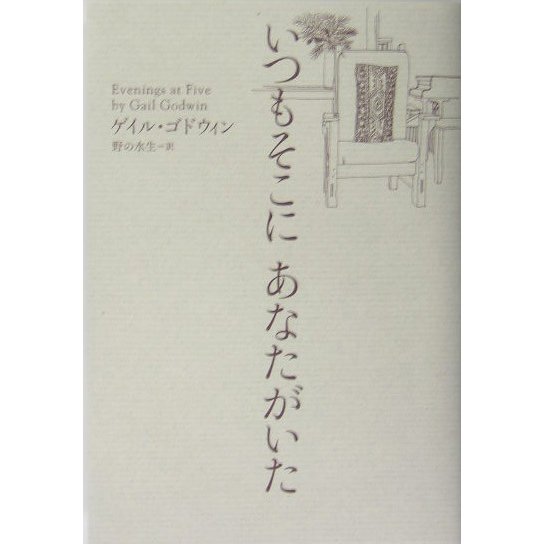 いつもそこに あなたがいた
Evenings at Five
by Gail Godwin
ゲイル・ゴドウィン
野の水生=訳